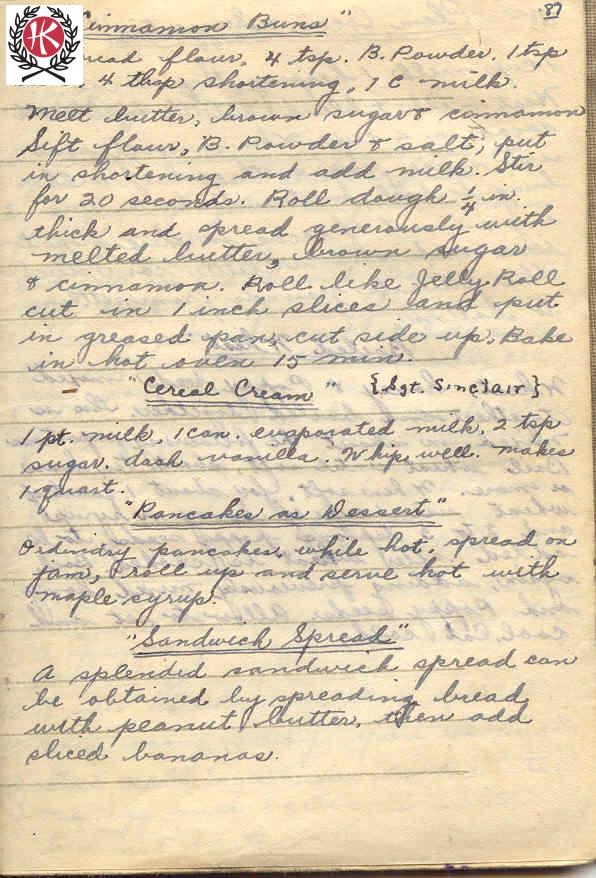 87
"Cinnamon Buns"
flour, 4 tsp. B. Powder, 1 tsp
, 4 tbsp shortening, 1 C milk.
Melt butter, brown sugar & cinnamon
Sift flour, B. Powder & salt, put
in shortening and add milk. Stir
for 20 seconds. Roll dough 1/4 in.
thick and spread generously with
melted butter, brown sugar
& cinnamon. Roll like Jelly Roll
cut in 1 inch slices and put
in greased pan, cut side up. Bake
in hot oven 15 min.
"Cereal Cream" {Sgt. Sinclair}
1 pt. milk, 1 can. evaporated milk, 2 tsp
sugar. dash vanilla. Whip well. makes
1 quart.
"Pancakes as Dessert"
Ordindry pancakes, while hot, spread on
jam, roll up and serve hot with
maple syrup.
"Sandwich Spread"
A splendid sandwich spread can
be obtained by spreading bread
with peanut butter, then add
sliced bananas.